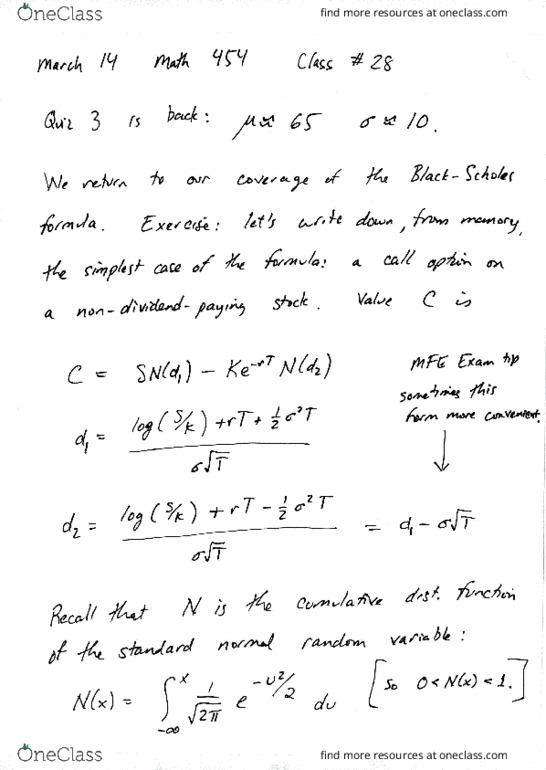 OneClass find more resources at oneclass.com
March 14 Math 454 Class # 28
Quiz 3 is back: μ ≈ 65 σ ≈ 10.
We return to our coverage of the Black-Scholes
formula. Exercise: let's write down, from memory,
the simplest case of the formula: a call option on
a non-dividend-paying stock. Value C is
C = SN(d₁) – Ke^(-rT) N(d₂)
MFE Exam tip
sometimes this
form more convenient.
d₁ = (log(S/K) + rT + ½σ²T) / (σ√T)
d₂ = (log(S/K) + rT – ½σ²T) / (σ√T) = d₁ – σ√T
Recall that N is the cumulative dist. function
of the standard normal random variable:
N(x) = ∫_{-∞}^{x} (1/√(2π)) e^(-u²/2) du [so 0 < N(x) < 1.]
OneClass find more resources at oneclass.com